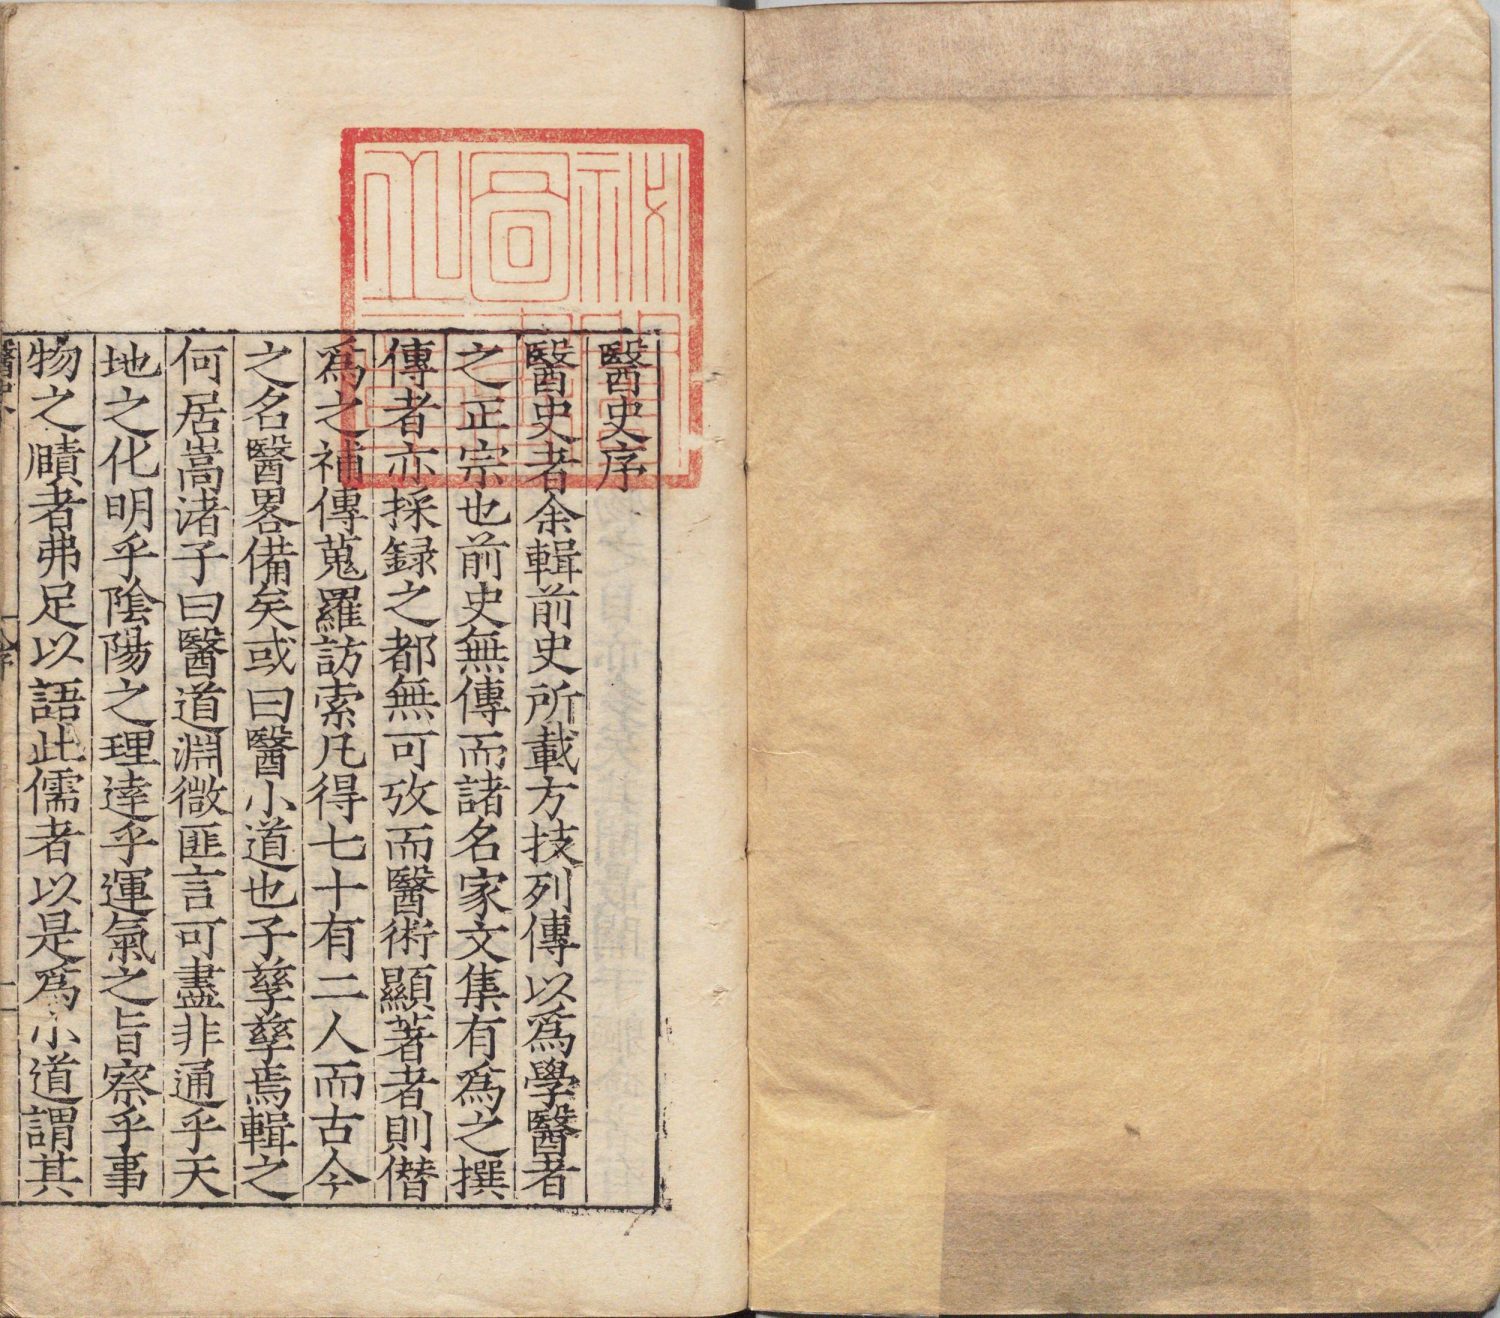 醫史序
醫史者余輯前史所載方技列傳以爲學醫者
之正宗也前史無傳而諸名家文集有爲之撰
傳者亦採録之都無可攷而醫術顯著者則僭
爲之補傳蒐羅訪索凡得七十有二人而古今
之名醫畧備矣或曰醫小道也子孳孳焉輯之
何居嵩渚子曰醫道淵微匪言可盡非通乎天
地之化明乎陰陽之理達乎運氣之旨察乎事
物之賾者弗足以語此儒者以是爲小道謂其